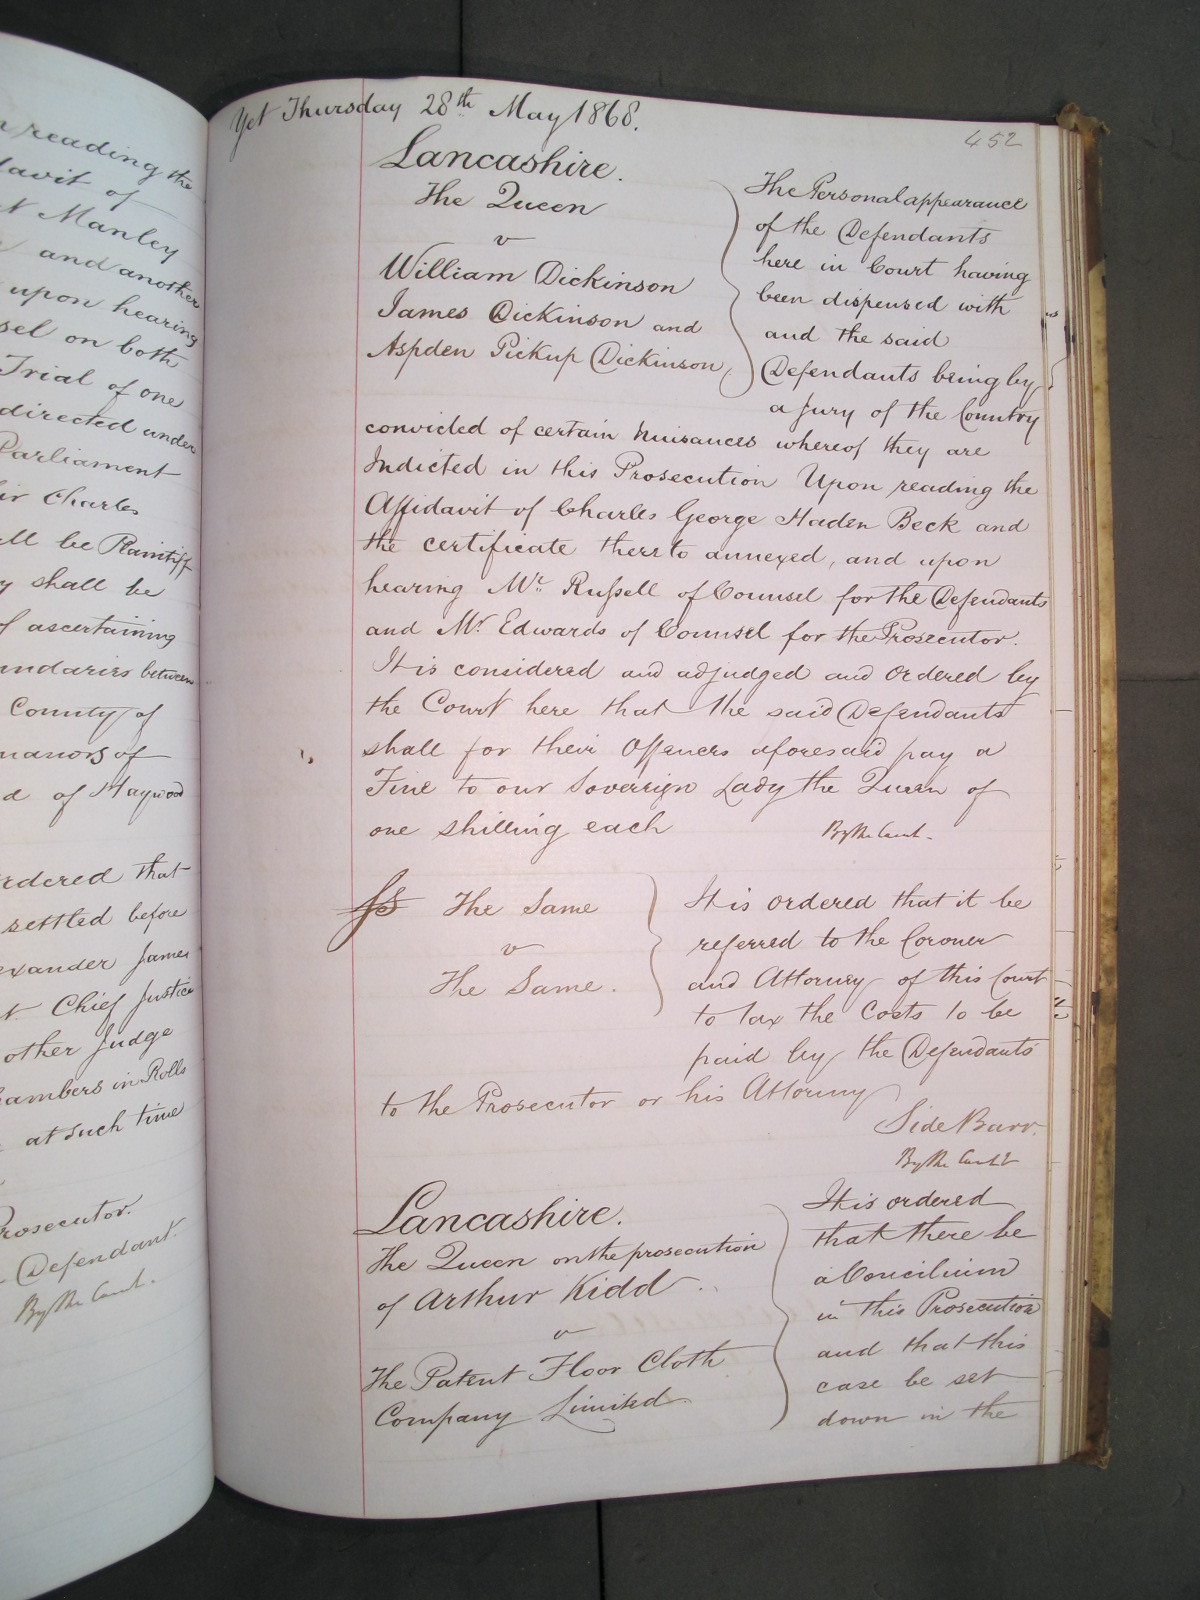 reading the
davit of
Manley
and another
upon hearing
sel on both
Trial of one
directed under
Parliament
Sir Charles
all be Plaintiff
y shall be
of ascertaining
undaries between
County of
manors of
d of Haywood
rdered that
settled before
exander James
t Chief Justice
other Judge
hambers in Rolls
at such time
Prosecutor.
Defendant.
By the Court.
Yet Thursday 28th May 1868.
452
Lancashire.
The Queen
v
William Dickinson
James Dickinson and
Aspden Pickup Dickinson,
The Personal appearance
of the Defendants
here in Court having
been dispensed with
and the said
Defendants being by
a Jury of the Country
convicted of certain Nuisances whereof they are
Indicted in this Prosecution Upon reading the
Affidavit of Charles George Haden Beck and
the certificate thereto annexed, and upon
hearing Mr. Russell of Counsel for the Defendants
and Mr. Edwards of Counsel for the Prosecutor.
It is considered and adjudged and Ordered by
the Court here that the said Defendants
shall for their Offences aforesaid pay a
Fine to our Sovereign Lady the Queen of
one shilling each
By the Court.
The Same
v
The Same.
It is ordered that it be
referred to the Coroner
and Attorney of this Court
to tax the Costs to be
paid by the Defendants
to the Prosecutor or his Attorney
Side Barr.
By the Court
Lancashire.
The Queen on the prosecution
of Arthur Kidd
v
The Patent Floor Cloth
Company Limited
It is ordered
that there be
a Concilium
in this Prosecution
and that this
case be set
down in the